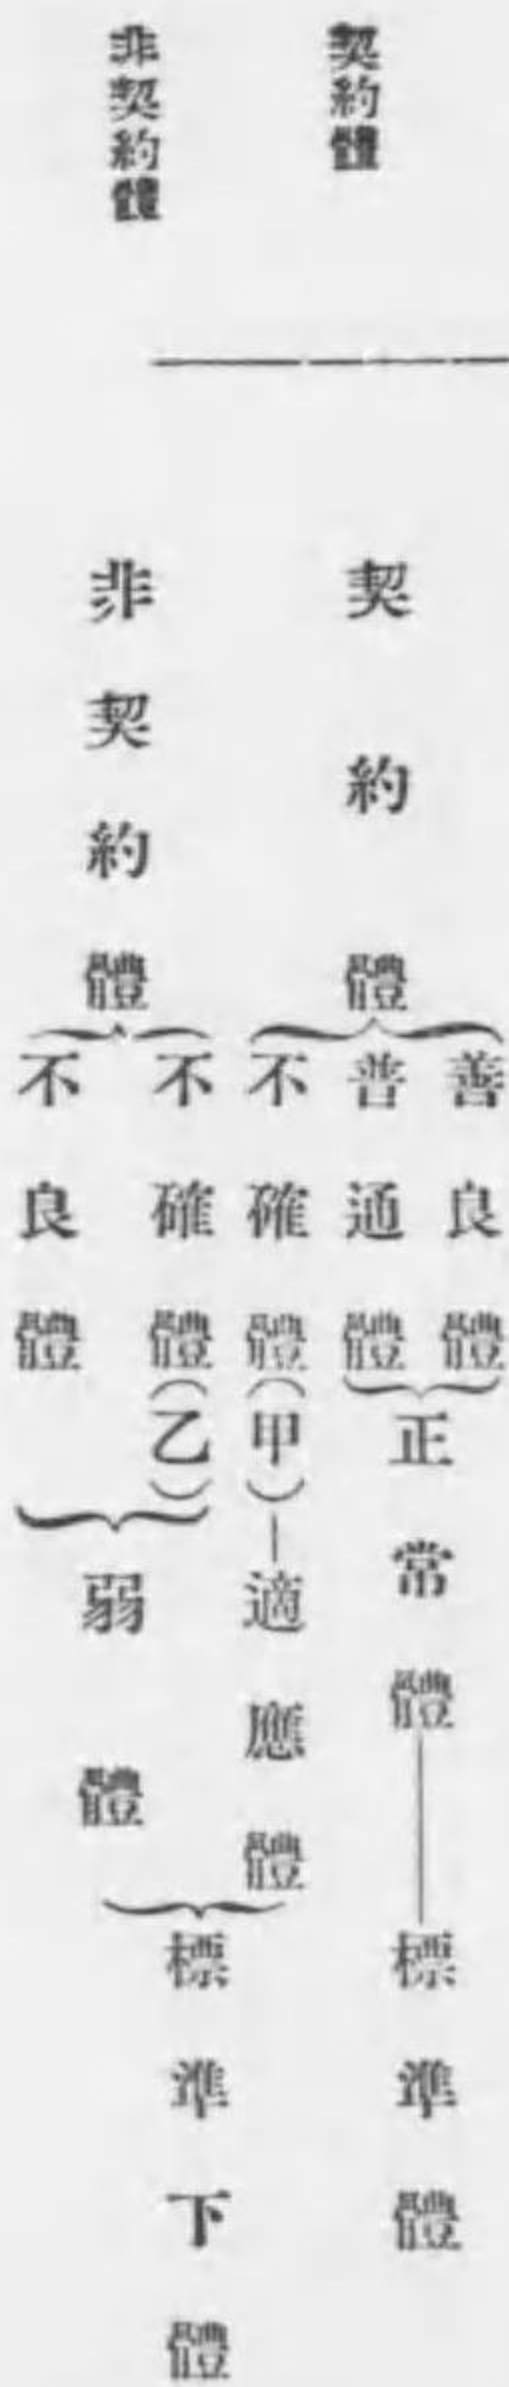 契約體
非契約體
契約體
善良體
普通體
正常體
標準體
不確體(甲)
適應體
非契約體
不確體(乙)
不良體
弱體
標準下體